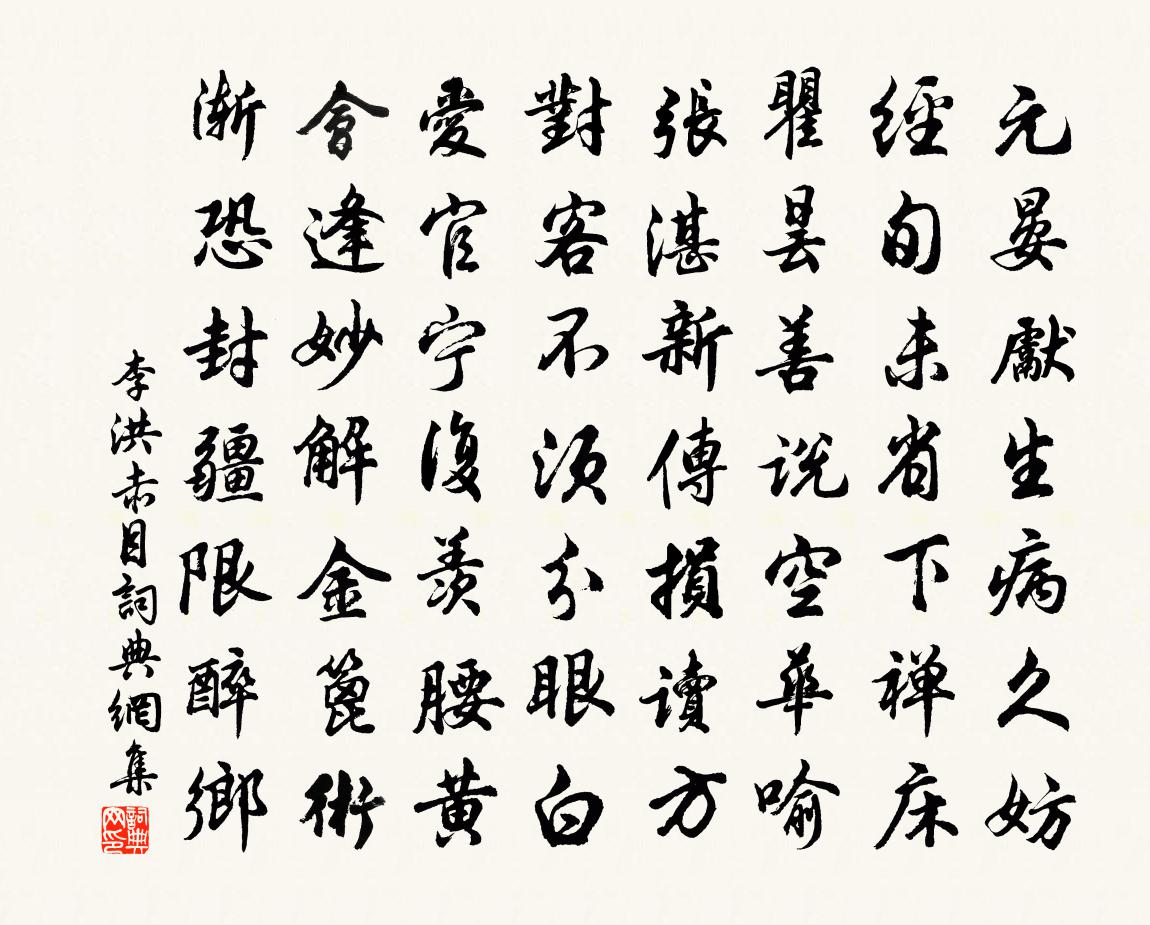 元晏獻生病久妨
經旬未省下禅床
瞿曇善説空華喻
張湛新傳損讀方
對客不須分眼白
愛官宁復羨腰黃
會逢妙解金篦術
漸恐封疆限醉鄉
李洪赤目詞典網集
詞典网印